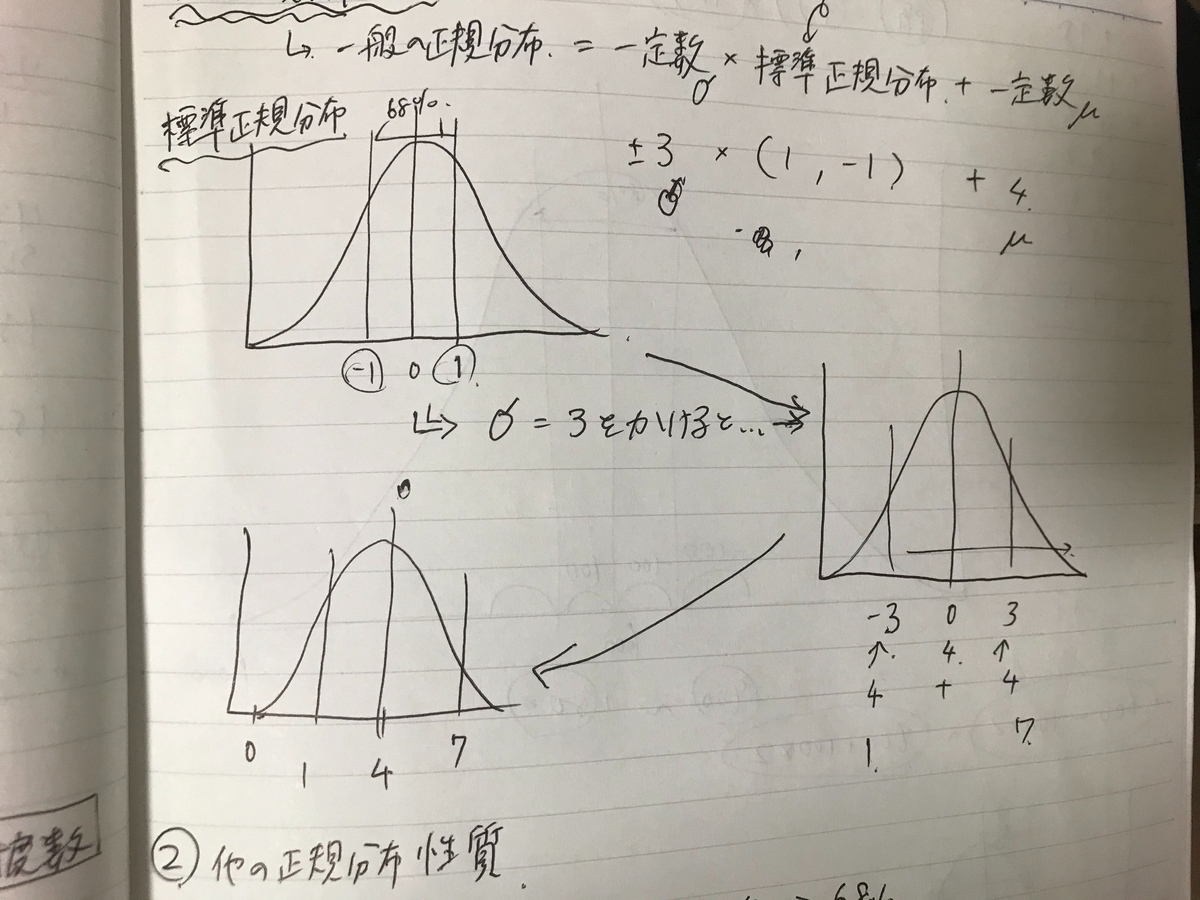 ↳ 一般の正規分布. = 一定数 × 標準正規分布. + 一定数
σ μ
標準正規分布 68%.
±3 × (1, -1) + 4.
σ μ
-1 0 1
↳ σ = 3をかけると... →
-3 0 3
↑ 4. ↑
4 + 4
1. 7.
0 1 4 7
度数
② 他の正規分布性質.
68%